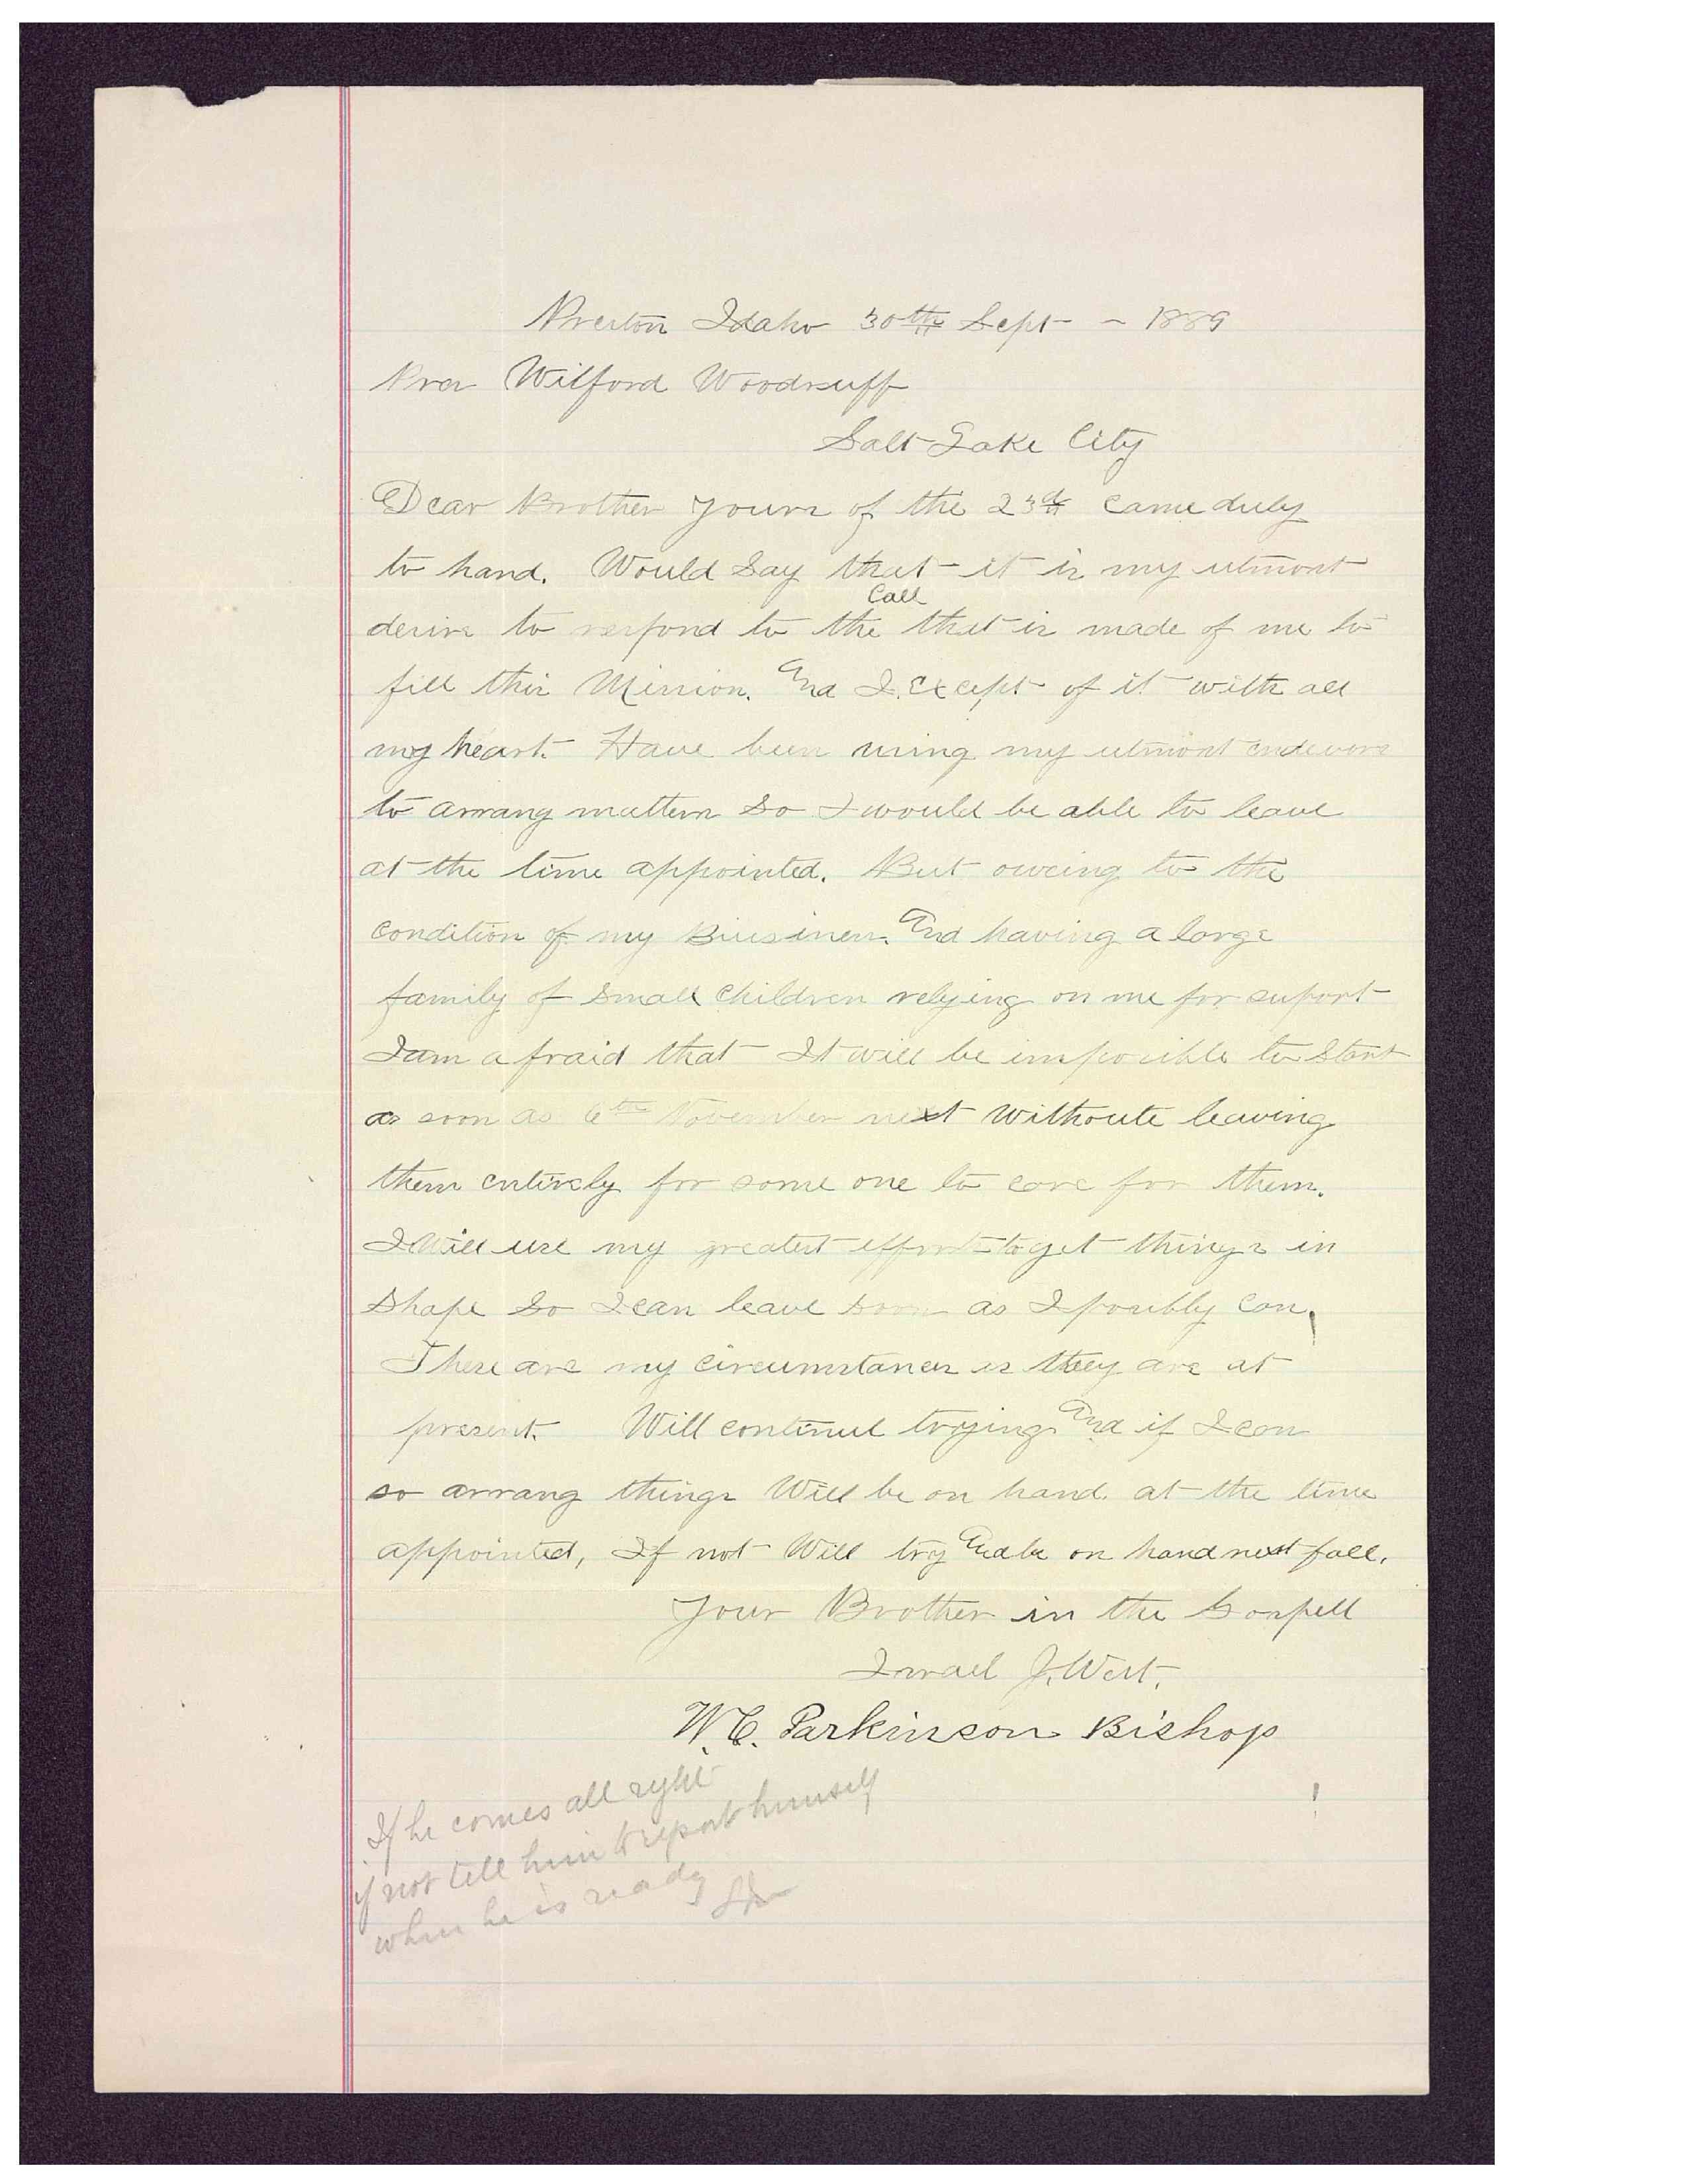 Preston Idaho 30th Sept - 1889
Pres Wilford Woodruff
Salt Lake City
Dear Brother Yours of the 23d came duly
to hand. Would Say that it is my utmost
Call
desire to respond to the that is made of me to
fill this Mission. And I. Except of it with all
my heart. Have been using my utmost endevors
to arrang matters So I would be able to leave
at the time appointed. But oweing to the
condition of my Business. And having a large
family of small children relying on me for suport
I am afraid that It will be imposible to Start
as soon as 6th November next withoute leaving
them entirely for some one to care for them.
I Will use my greatest efforts to get things in
Shape So I can leave soon as I possibly can.
These are my circumstances as they are at
present. Will continue trying And if I can
so arrang things Will be on hand. at the time
appointed, If not Will try And be on hand next fall.
Your Brother in the Gospell
Israel J. West.
W. C. Parkinson Bishop
If he comes all right
if not tell him to report himself
when he is ready